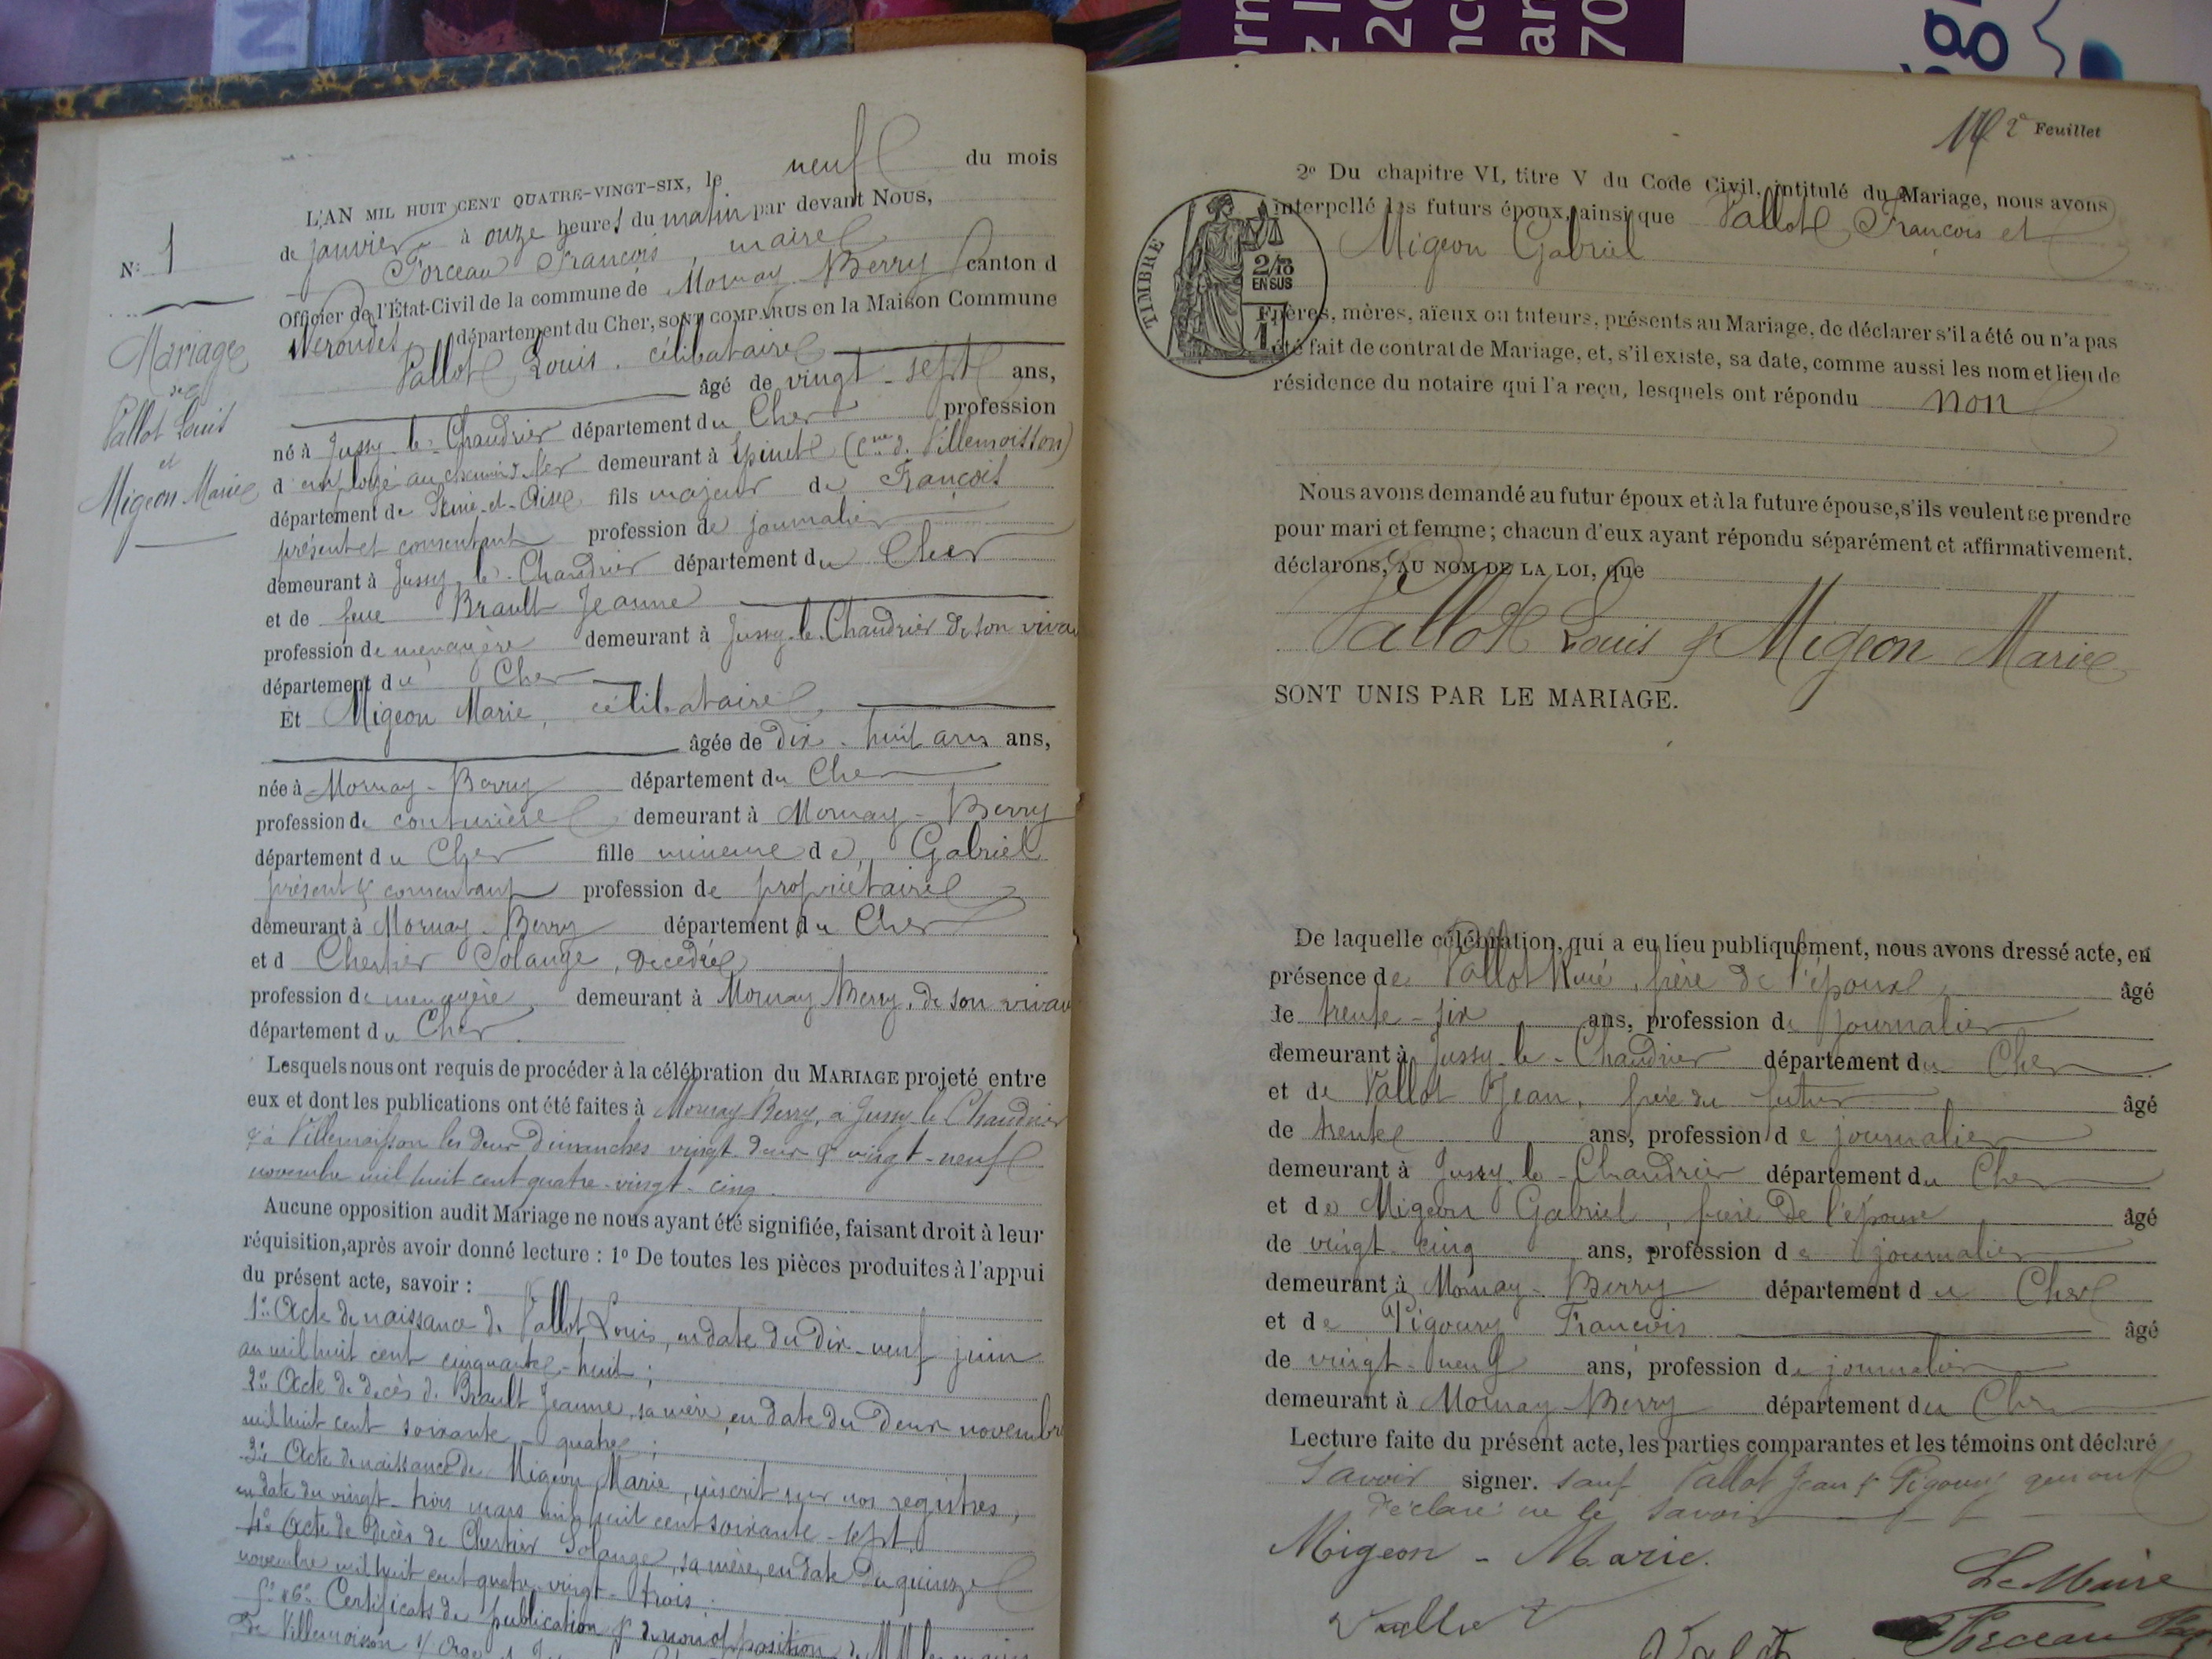 N° 1
Mariage
de
Vallot Louis
et
Migeon Marie
L'AN MIL HUIT CENT QUATRE-VINGT-SIX, le neuf du mois
de janvier à onze heures du matin par devant Nous,
Forceau François, maire
Officier de l'État-Civil de la commune de Mornay-Berry canton d
Nérondes, département du Cher, SONT COMPARUS en la Maison Commune
Vallot Louis, célibataire
âgé de vingt-sept ans,
né à Jussy-le-Chaudrier département du Cher profession
d'employé au chemin d. fer demeurant à Epinet (Cne d. Villemoisson)
département de Seine-et-Oise fils majeur de François
présent et consentant profession de journalier
demeurant à Jussy-le-Chaudrier département du Cher
et de feue Brault Jeanne
profession de ménagère demeurant à Jussy-le-Chaudrier de son vivan
département du Cher
Et Migeon Marie, célibataire,
âgée de dix-huit ans ans,
née à Mornay-Berry département du Cher
profession de couturière demeurant à Mornay-Berry
département du Cher fille mineure de Gabriel
présent & consentant profession de propriétaire
demeurant à Mornay-Berry département du Cher
et d Chertier Solange, décédée
profession de ménagère demeurant à Mornay Berry, de son vivan
département du Cher.
Lesquels nous ont requis de procéder à la célébration du MARIAGE projeté entre
eux et dont les publications ont été faites à Mornay Berry, à Jussy le Chaudrier
& à Villemoisson les deux dimanches vingt-deux & vingt-neuf
novembre mil huit cent quatre-vingt-cinq.
Aucune opposition audit Mariage ne nous ayant été signifiée, faisant droit à leur
réquisition, après avoir donné lecture : 1° De toutes les pièces produites à l'appui
du présent acte, savoir :
1° Acte de naissance de Vallot Louis, en date du dix-neuf juin
an mil huit cent cinquante-huit ;
2° Acte de décès d. Brault Jeanne, sa mère, en date du deux novembre
mil huit cent soixante-quatre ;
3° Acte de naissance de Migeon Marie, inscrit sur nos registres,
en date du vingt-trois mars mil huit cent soixante-sept.
4° Acte de décès de Chertier Solange, sa mère, en date du quinze
novembre mil huit cent quatre-vingt-trois.
5° & 6° Certificats de publication & de non opposition de MM les maires
de Villemoisson s/ Orge et
2e Feuillet
2° Du chapitre VI, titre V du Code Civil, intitulé du Mariage, nous avons
interpellé les futurs époux, ainsi que Vallot François et
Migeon Gabriel
TIMBRE
2/10
EN SUS
1F
Frères, mères, aïeux ou tuteurs, présents au Mariage, de déclarer s'il a été ou n'a pas
été fait de contrat de Mariage, et, s'il existe, sa date, comme aussi les nom et lieu de
résidence du notaire qui l'a reçu, lesquels ont répondu non
Nous avons demandé au futur époux et à la future épouse, s'ils veulent se prendre
pour mari et femme ; chacun d'eux ayant répondu séparément et affirmativement.
déclarons, AU NOM DE LA LOI, que
Vallot Louis & Migeon Marie
SONT UNIS PAR LE MARIAGE.
De laquelle célébration, qui a eu lieu publiquement, nous avons dressé acte, en
présence de Vallot René, frère de l'époux, âgé
de trente-six ans, profession de journalier
demeurant à Jussy-le-Chaudrier département du Cher
et de Vallot Jean, frère du futur âgé
de trente ans, profession de journalier
demeurant à Jussy-le-Chaudrier département du Cher
et de Migeon Gabriel, frère de l'épouse âgé
de vingt-cinq ans, profession de journalier
demeurant à Mornay-Berry département du Cher
et de Pigoury François âgé
de vingt-neuf ans, profession de journalier
demeurant à Mornay-Berry département du Cher
Lecture faite du présent acte, les parties comparantes et les témoins ont déclaré
savoir signer. sauf Vallot Jean & Pigoury qui ont
déclaré ne le savoir
Migeon - Marie.
Le Maire
Vallot
Forceau